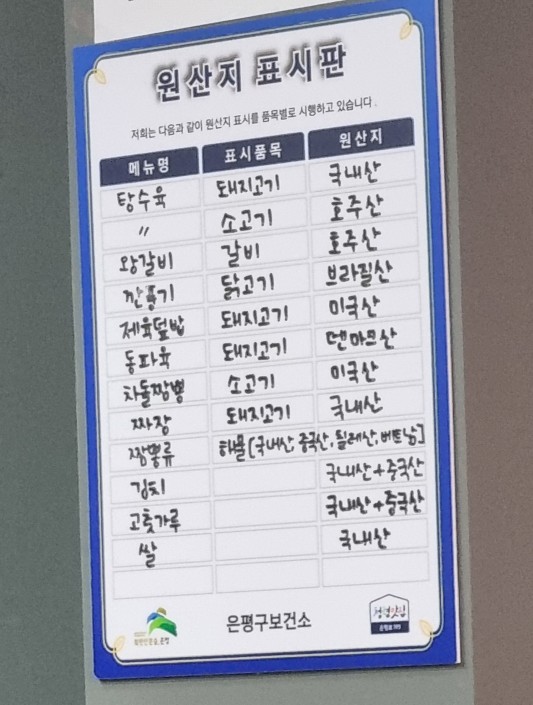 원산지 표시판
저희는 다음과 같이 원산지 표시를 품목별로 시행하고 있습니다.
메뉴명 표시품목 원산지
탕수육 돼지고기 국내산
〃 소고기 호주산
왕갈비 갈비 호주산
깐풍기 닭고기 브라질산
제육덮밥 돼지고기 미국산
동파육 돼지고기 덴마크산
차돌짬뽕 소고기 미국산
짜장 돼지고기 국내산
짬뽕류 해물[국내산, 중국산, 칠레산, 베트남]
김치 국내산+중국산
고춧가루 국내산+중국산
쌀 국내산
은평
은평구보건소